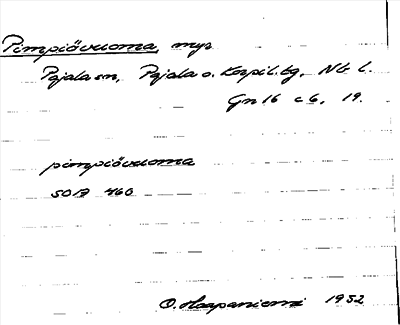 Pimpiövuoma, mys
Pajala sn, Pajala o. Korpil. tg, Nb l.
Gn 16 c 6, 19.
pimpiövuoma
SOB 460
O. Haapaniemi 1932